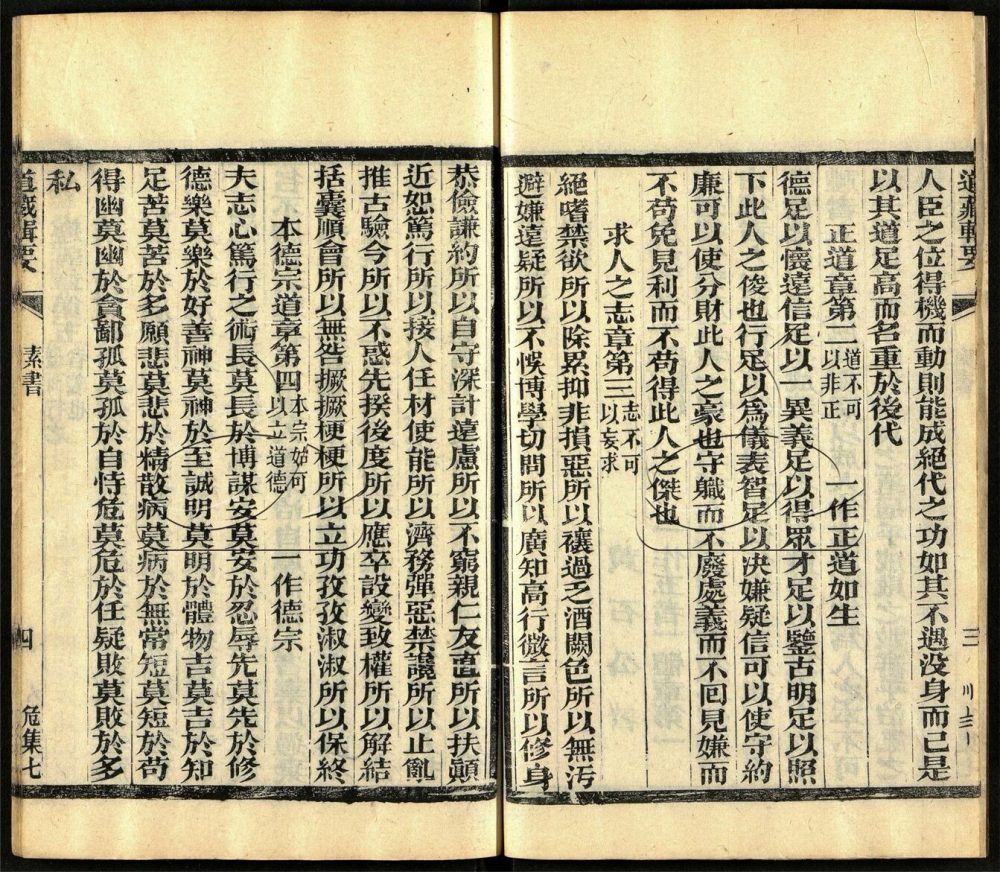 道藏輯要
人臣之位得機而動則能成絕代之功如其不遇沒身而已是
以其道足高而名重於後代
正道章第二 道不可以非正 一作正道如生
德足以懷遠信足以一異義足以得眾才足以鑒古明足以照
下此人之俊也行足以為儀表智足以决嫌疑信可以使守約
廉可以使分財此人之豪也守職而不廢處義而不回見嫌而
不苟免見利而不苟得此人之傑也
求人之志章第三 志不可以妄求
絕嗜禁欲所以除累抑非損惡所以禳過乏酒闕色所以無污
避嫌遠疑所以不悞博學切問所以廣知高行微言所以修身
三
恭儉謙約所以自守深計遠慮所以不窮親仁友直所以扶顛
近恕篤行所以接人任材使能所以濟務彈惡禁讒所以止亂
推古驗今所以不惑先揆後度所以應卒設變致權所以解結
括囊順會所以無咎撅撅梗梗所以立功孜孜淑淑所以保終
本德宗道章第四 本宗始可以立道德 一作德宗
夫志心篤行之術長莫長於博謀安莫安於忍辱先莫先於修
德樂莫樂於好善神莫神於至誠明莫明於體物吉莫吉於知
足苦莫苦於多願悲莫悲於精散病莫病於無常短莫短於苟
得幽莫幽於貪鄙孤莫孤於自恃危莫危於任疑敗莫敗於多
私
道藏輯要
素書
四
危集七